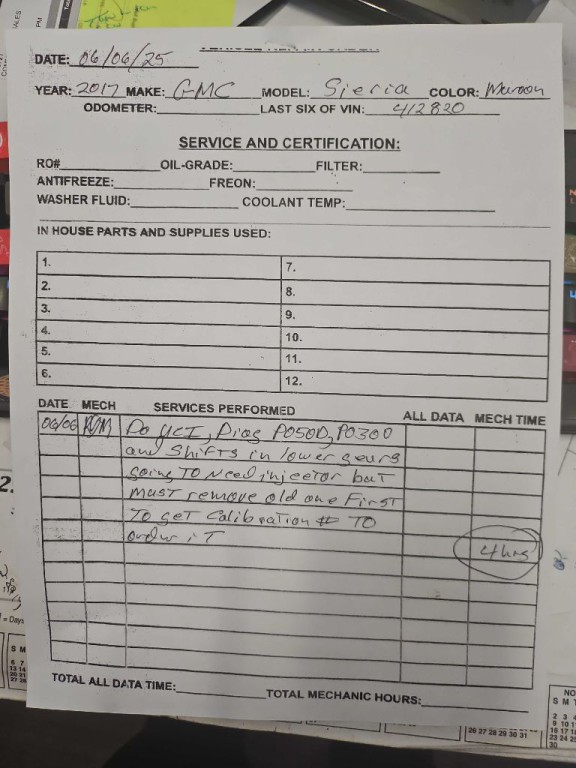 DATE: 06/06/25
YEAR: 2017 MAKE: GMC MODEL: Sieria COLOR: Maroon
ODOMETER: LAST SIX OF VIN: 412820
SERVICE AND CERTIFICATION:
RO# OIL-GRADE: FILTER:
ANTIFREEZE: FREON:
WASHER FLUID: COOLANT TEMP:
IN HOUSE PARTS AND SUPPLIES USED:
1. 7.
2. 8.
3. 9.
4. 10.
5. 11.
6. 12.
DATE MECH SERVICES PERFORMED ALL DATA MECH TIME
06/06 Do YCI, Diag P050D, P0300
and Shifts in lower gears
going TO Need injector but
MUST remove old one First
To geT Calibration # TO
order iT
4hrs
TOTAL ALL DATA TIME: TOTAL MECHANIC HOURS: